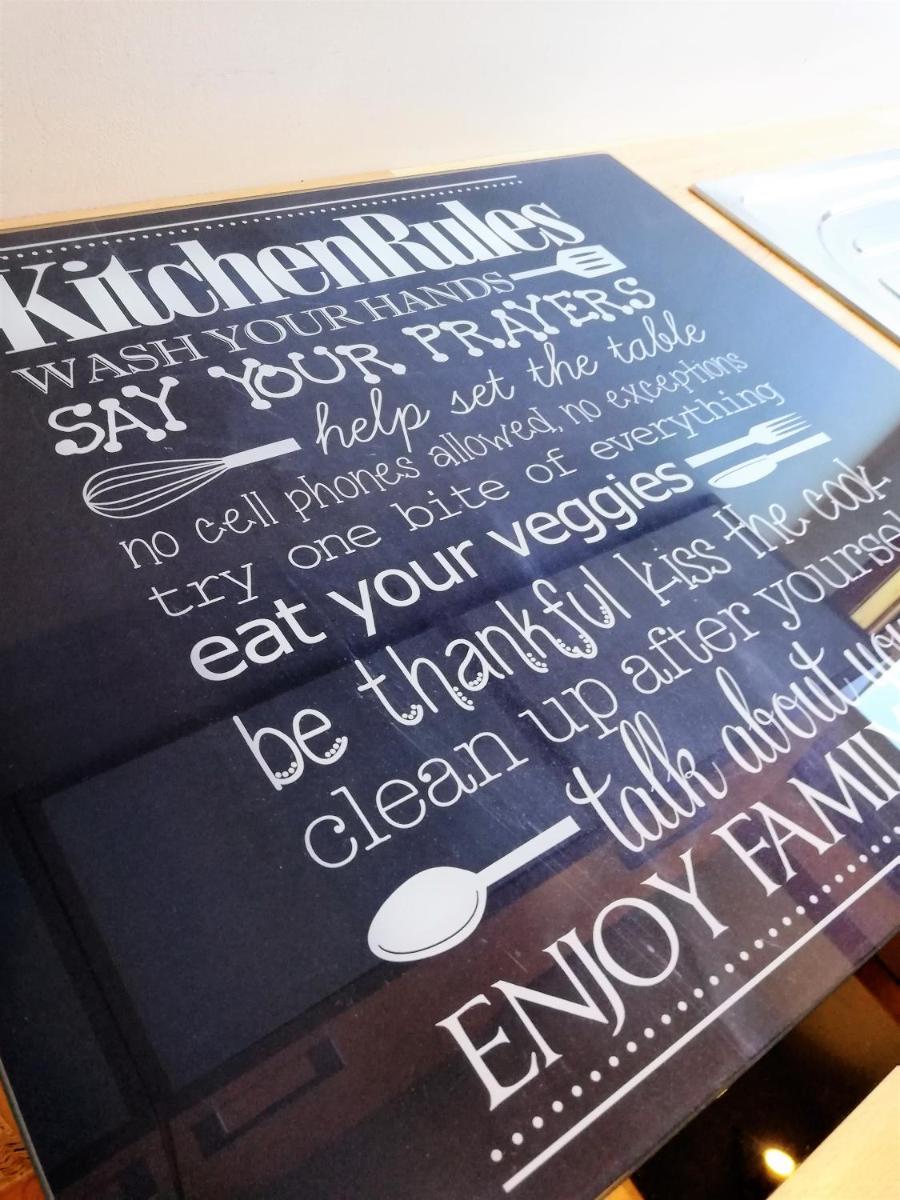 KitchenRules
WASH YOUR HANDS
SAY YOUR PRAYERS
help set the table
no cell phones allowed, no exceptions
try one bite of everything
eat your veggies
be thankful kiss the cook
clean up after
talk about
ENJOY